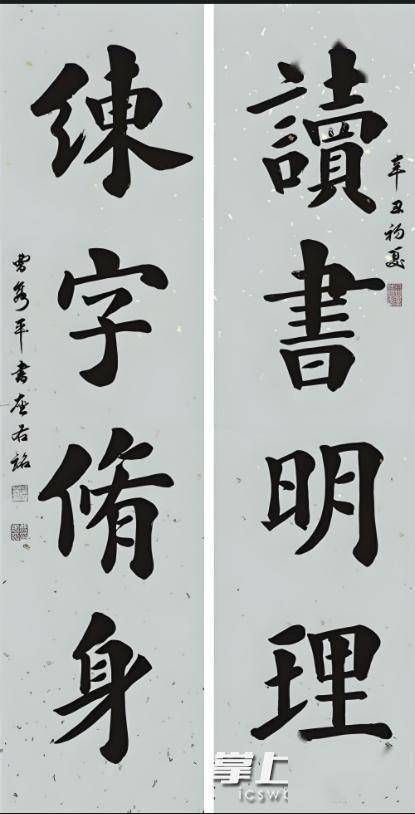 讀書明理
辛丑初夏
練字脩身
曹平書座右銘
掌上
icswb